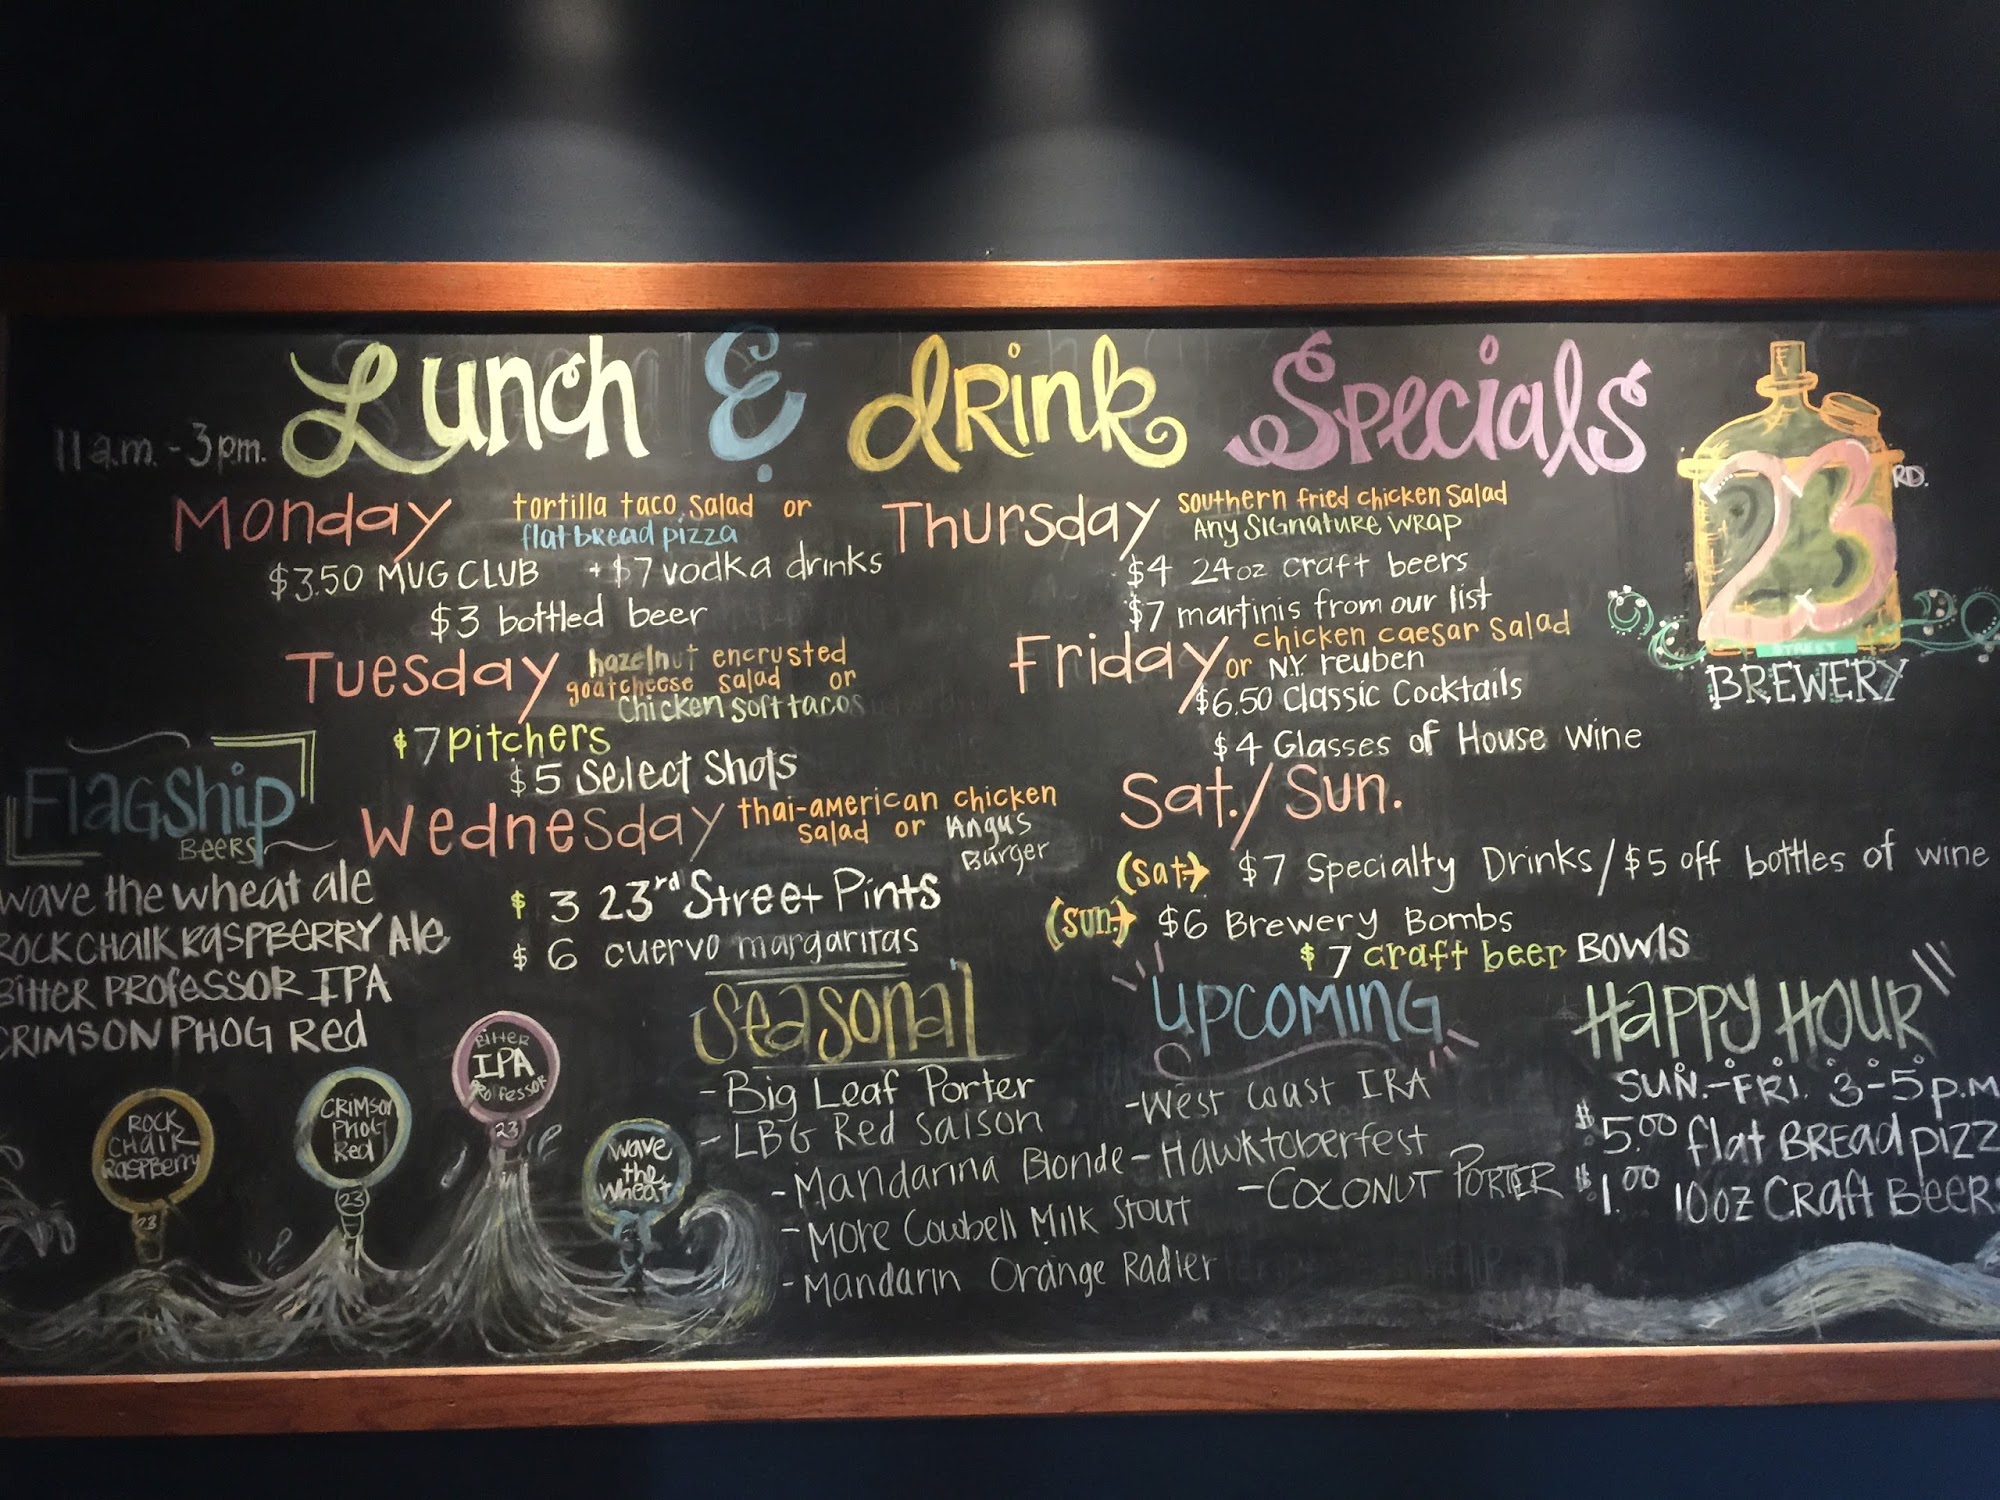 Lunch & drink Specials
11a.m. - 3pm.
Monday
tortilla taco salad or
flatbread pizza
$3.50 MUG CLUB + $7 vodka drinks
$3 bottled beer
Tuesday
hazelnut encrusted
goatcheese salad or
Chicken soft tacos
$7 pitchers
$5 Select Shots
Wednesday
thai-american chicken
salad or Angus
Burger
$3 23rd Street Pints
$6 cuervo margaritas
Thursday
southern fried chicken salad
Any Signature wrap
$4 24oz craft beers
$7 martinis from our list
Friday
chicken caesar salad
or N.Y. reuben
$6.50 Classic Cocktails
$4 Glasses of House Wine
Sat./Sun.
(sat→ $7 Specialty Drinks/$5 off bottles of wine
(sun→ $6 Brewery Bombs
$7 craft beer BOWLS
23 RD.
STREET
BREWERY
Flagship
BEERS
wave the wheat ale
ROCK CHALK RASPBERRY Ale
BITTER PROFESSOR IPA
CRIMSON PHOG Red
ROCK
CHALK
RASPBERRY
23
CRIMSON
PHOG
Red
23
BITTER
IPA
PROFESSOR
23
wave
the
wheat
Seasonal
-Big Leaf Porter
-LBG Red Saison
-Mandarina Blonde
-More Cowbell Milk Stout
-Mandarin Orange Radler
UPCOMING
-West Coast IRA
-Hawktoberfest
-COCONUT PORTER
HAPPY HOUR
SUN.-FRI. 3-5p.m
$5.00 flat BREad pizz
$1.00 10oz CRAft BEERS